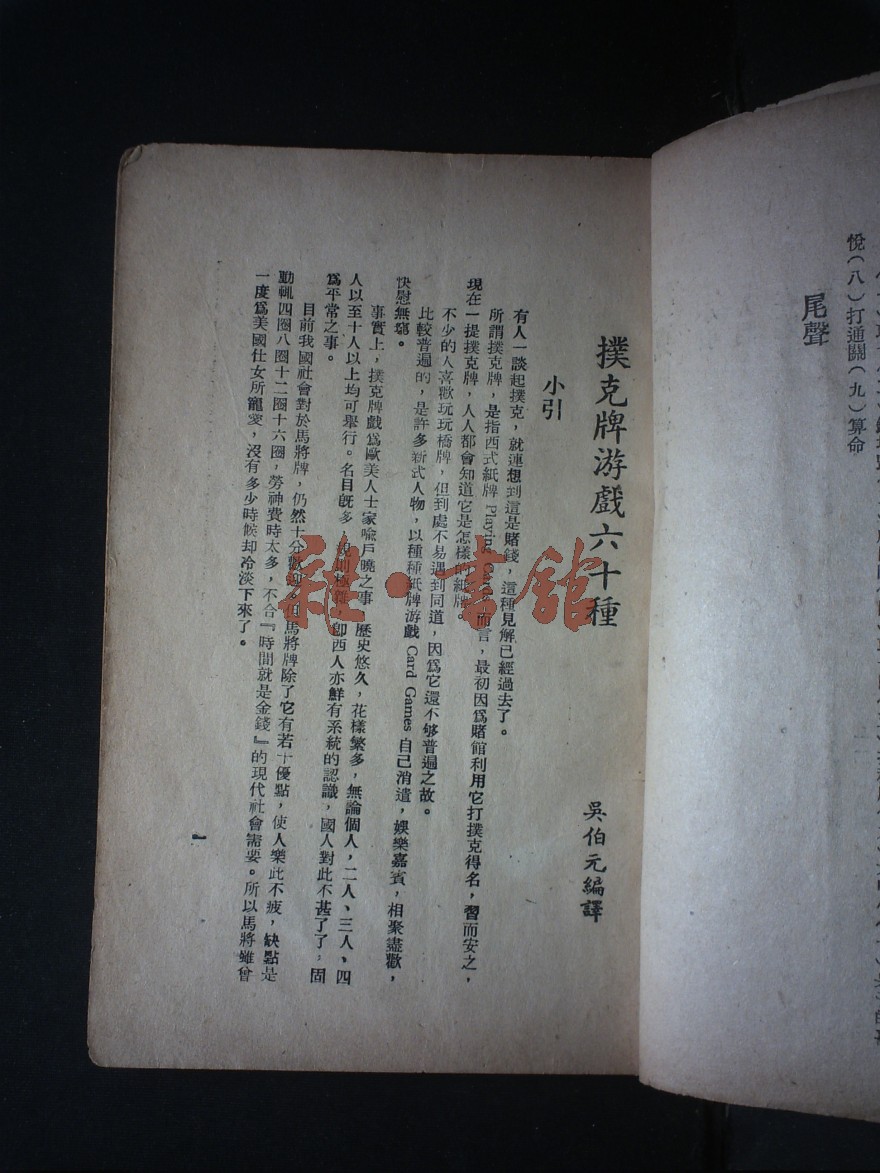 尾聲
悅(八)打通關(九)算命
撲克牌游戲六十種
吳伯元編譯
小引
有人一談起撲克,就連想到這是賭錢,這種見解已經過去了。
所謂撲克牌,是指西式紙牌 Playing Cards 而言,最初因爲賭館利用它打撲克得名,習而安之,
現在一提撲克牌,人人都會知道它是怎樣的紙牌。
不少的人喜歡玩玩橋牌,但到處不易遇到同道,因爲它還不够普遍之故。
比較普遍的,是許多新式人物,以種種紙牌游戲 Card Games 自己消遣,娛樂嘉賓,相聚盡歡,
快慰無窮。
事實上,撲克牌戲爲歐美人士家喻戶曉之事 歷史悠久,花樣繁多,無論個人,二人、三人、四
人以至十人以上均可舉行。名目旣多 規則極新,卽西人亦鮮有系統的認識,國人對此不甚了了,固
爲平常之事。
目前我國社會對於馬將牌,仍然十分歡迎。但馬將牌除了它有若干優點,使人樂此不疲,缺點是
動輒四圈八圈十二圈十六圈,勞神費時太多,不合『時間就是金錢』的現代社會需要。所以馬將雖曾
一度爲美國仕女所寵愛,沒有多少時候却冷淡下來了。
一
雜·書館